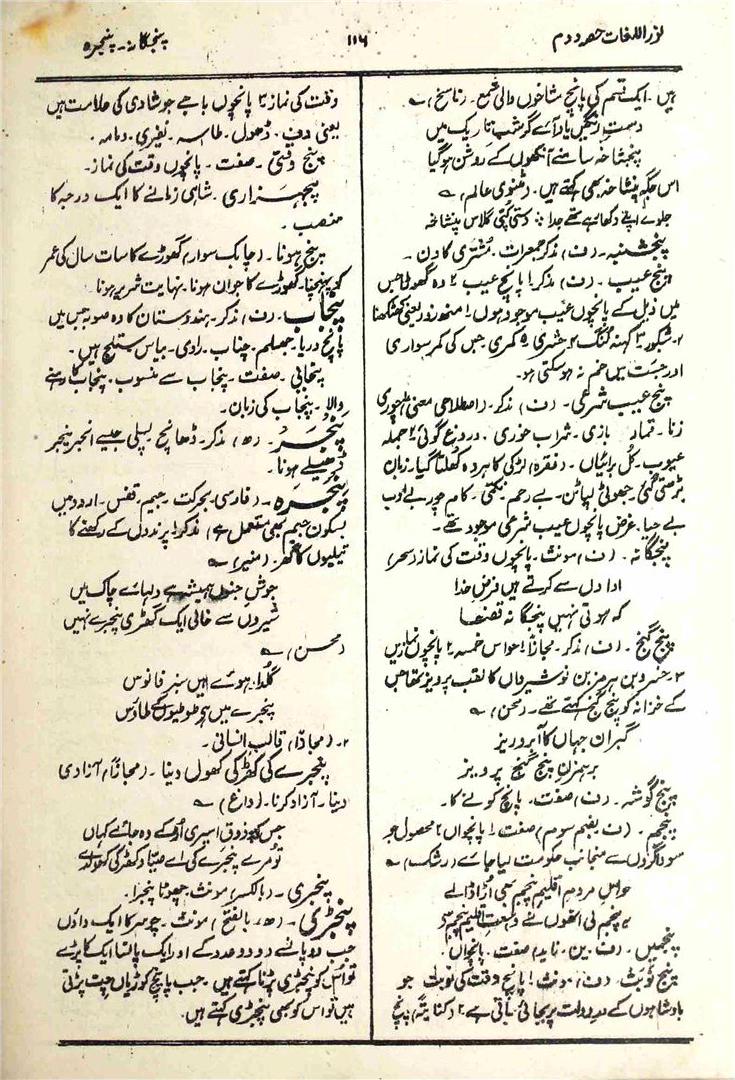 نور اللغات حصہ دوم
۱۱۶
پنجگانہ۔ پنجرہ
ہیں۔ ایک قسم کی پانچ شاخوں والی شمع۔ (ناسخ) ؎
دست رنگیں یاد آئے گر شب تاریک میں
پنجشاخہ سامنے آنکھوں کے روشن ہوگیا
اس جگہ پنشاخہ بھی کہتے ہیں۔ (مثنوی عالم) ؎
جلوے اپنے دکھاتے تھے جدا ؞ دستی کپی گلاس پنشاخہ
پنجشنبہ۔ (ف) مذکر جمعرات۔ مشتری کا دن۔
پنج عیب۔ (ف) مذکر۱ پانچ عیب ۲ وہ گھوڑا جس
میں ذیل کے پانچوں عیب موجود ہوں۔ ۱ منھ زور یعنی کٹکھنا
۲۔ شبکور ۳ کہنہ لنگ ۴ حشری ۵ کمری جس کی کمر سواری
اور جست میں خم نہ ہوسکتی ہو۔
پنج عیب شرعی۔ (ف) مذکر۔ (اصطلاحی معنی) ۱ چوری
زنا۔ قمار بازی۔ شراب خوری۔ دروغ گوئی ۲ جملہ
عیوب۔ کل برائیاں۔ (فقرہ) لڑکی کا ہردہ کھلتا گیا۔ زبان
بڑھتی گئی، جھوٹی لپاٹن۔ بے رحم نکمی۔ کام چور بے ادب
بے حیا۔ غرض پانچوں عیب شرعی موجود تھے۔
پنجگانہ۔ (ف) مونث۔ پانچوں وقت کی نماز (سحر)
ادا دل سے کرتے ہیں فرض خدا
کہ ہوتی نہیں پنجگانہ قضا
پنج گنج۔ (ف) مذکر۔ مجازاً ۱ حواس خمسہ ۲ پانچوں نمازیں
۳۔ خسرو بن ہرمز بن نوشیرواں کا لقب پرویز تھا جس
کے خزانہ کو پنج گنج کہتے تھے۔ (محسن) ؎
گبران جہاں کا آبرو ریز
برہمزن پنج گنج پرویز
پنج گوشہ۔ (ف) صفت۔ پانچ کونے کا۔
پنجم۔ (ف بضم سوم) صفت ۱ پانچواں ۲ محصول جو
سوداگروں سے منجانب حکومت لیا جائے (رشک) ؎
حواس مردم اقلیم پنجم سبھی اڑا ڈالے
پنجم لی انھوں نے وسعت اقلیم پنجم
پنجمیں۔ (ف۔ ین۔ زاید) صفت۔ پانچواں۔
پنج نوبت۔ (ف) مونث ۱ پانچ وقت کی نوبت جو
بادشاہوں کے در دولت پر بجائی جاتی ہے ۲ (کنایۃً) پنج
وقت کی نماز ۳ پانچوں باجے جو شادی کی علامت ہیں
یعنی دف۔ ڈھول۔ طاسہ۔ نفیری۔ دمامہ۔
پنج وقتی۔ صفت۔ پانچوں وقت کی نماز۔
پنجہزاری۔ شاہی زمانے کا ایک درجہ کا
منصب۔
پنج ہونا۔ (چابک سوار) گھوڑے کا سات سال کی عمر
کو پہنچنا۔ گھوڑے کا جوان ہونا۔ نہایت شریر ہونا۔
پنجاب۔ (ف) مذکر۔ ہندوستان کا وہ صوبہ جس میں
پانچ دریا۔ جھیلم۔ چناب۔ راوی۔ بیاس۔ ستلج ہیں۔
پنجابی۔ صفت۔ پنجاب سے منسوب۔ پنجاب کا رہنے
والا۔ پنجاب کی زبان۔
پنجر۔ (ھ) مذکر۔ ڈھانچ۔ پسلی جیسے انجر پنجر
ڈھیلے ہونا۔
پنجرہ۔ (فارسی بحرکت جیم۔ قفس۔ اردو میں
بسکون جیم بھی مستعمل ہے) مذکر ۱ پرندوں کے رکھنے کا
تیلیوں کا گھر۔ (منیر) ؎
جوش جنوں ہمیشہ ہے دلہائے چاک میں
شیروں سے خالی ایک گھڑی پنجرے نہیں
(محسن) ؎
گلدا۔ ہوئے ہیں سبز فانوس
پنجرے میں ہر طوطیوں کے طاؤس
۲۔ (مجازاً) قالب انسانی۔
پنجرے کی کھڑکی کھول دینا۔ (مجازاً) آزادی
دینا۔ آزاد کرنا۔ (داغ) ؎
جس کو ذوق اسیری اڑ کے وہ جائے کہاں
تو مرے پنجرے کی اے صیاد کھڑکی کھولدے
پنجری۔ (بالکسر) مونث۔ چھوٹا پنجرا۔
پنجڑی۔ (ھ۔ بالفتح) مونث۔ چوسر کا ایک داؤں
جب دو پانسے دو دو عدد کے اور ایک پانسا ایک کا پڑے
تو اس کو پنجڑی پڑنا کہتے ہیں۔ جب پانچ کوڑیاں چت پڑتی
ہیں تو اس کو بھی پنجڑی کہتے ہیں۔